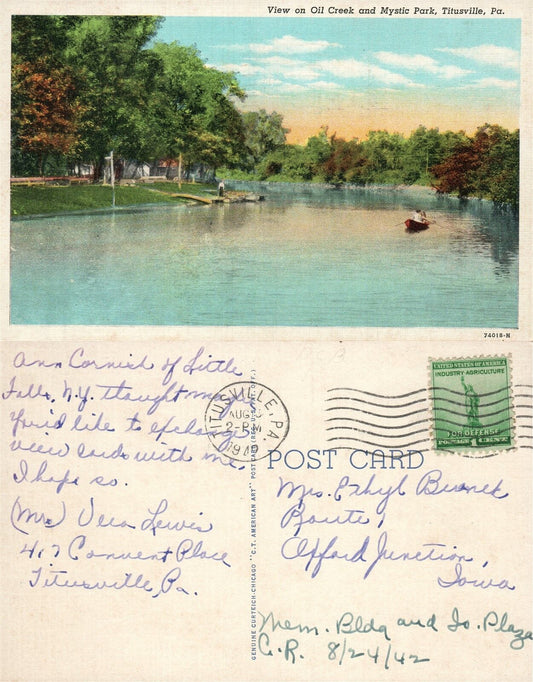 View on Oil Creek and Mystic Park, Titusville, Pa.
74018-N
Ann Cornish of Little
Falls, N.Y. thought maybe
You'd like to exchange
view cards with me.
I hope so.
(Mrs.) Vera Lewis
417 Convent Place
Titusville, Pa.
TITUSVILLE, PA.
AUG
2-PM
194
UNITED STATES OF AMERICA
INDUSTRY-AGRICULTURE
FOR DEFENSE
POSTAGE 1 CENT
GENUINE CURTEICH-CHICAGO "C.T. AMERICAN ART" POST CARD
POST CARD
Mrs. Ethyl
Route 1
Junction,
Iowa
Mem. Bldg and Io. Plaza
C.R. 8/24/42